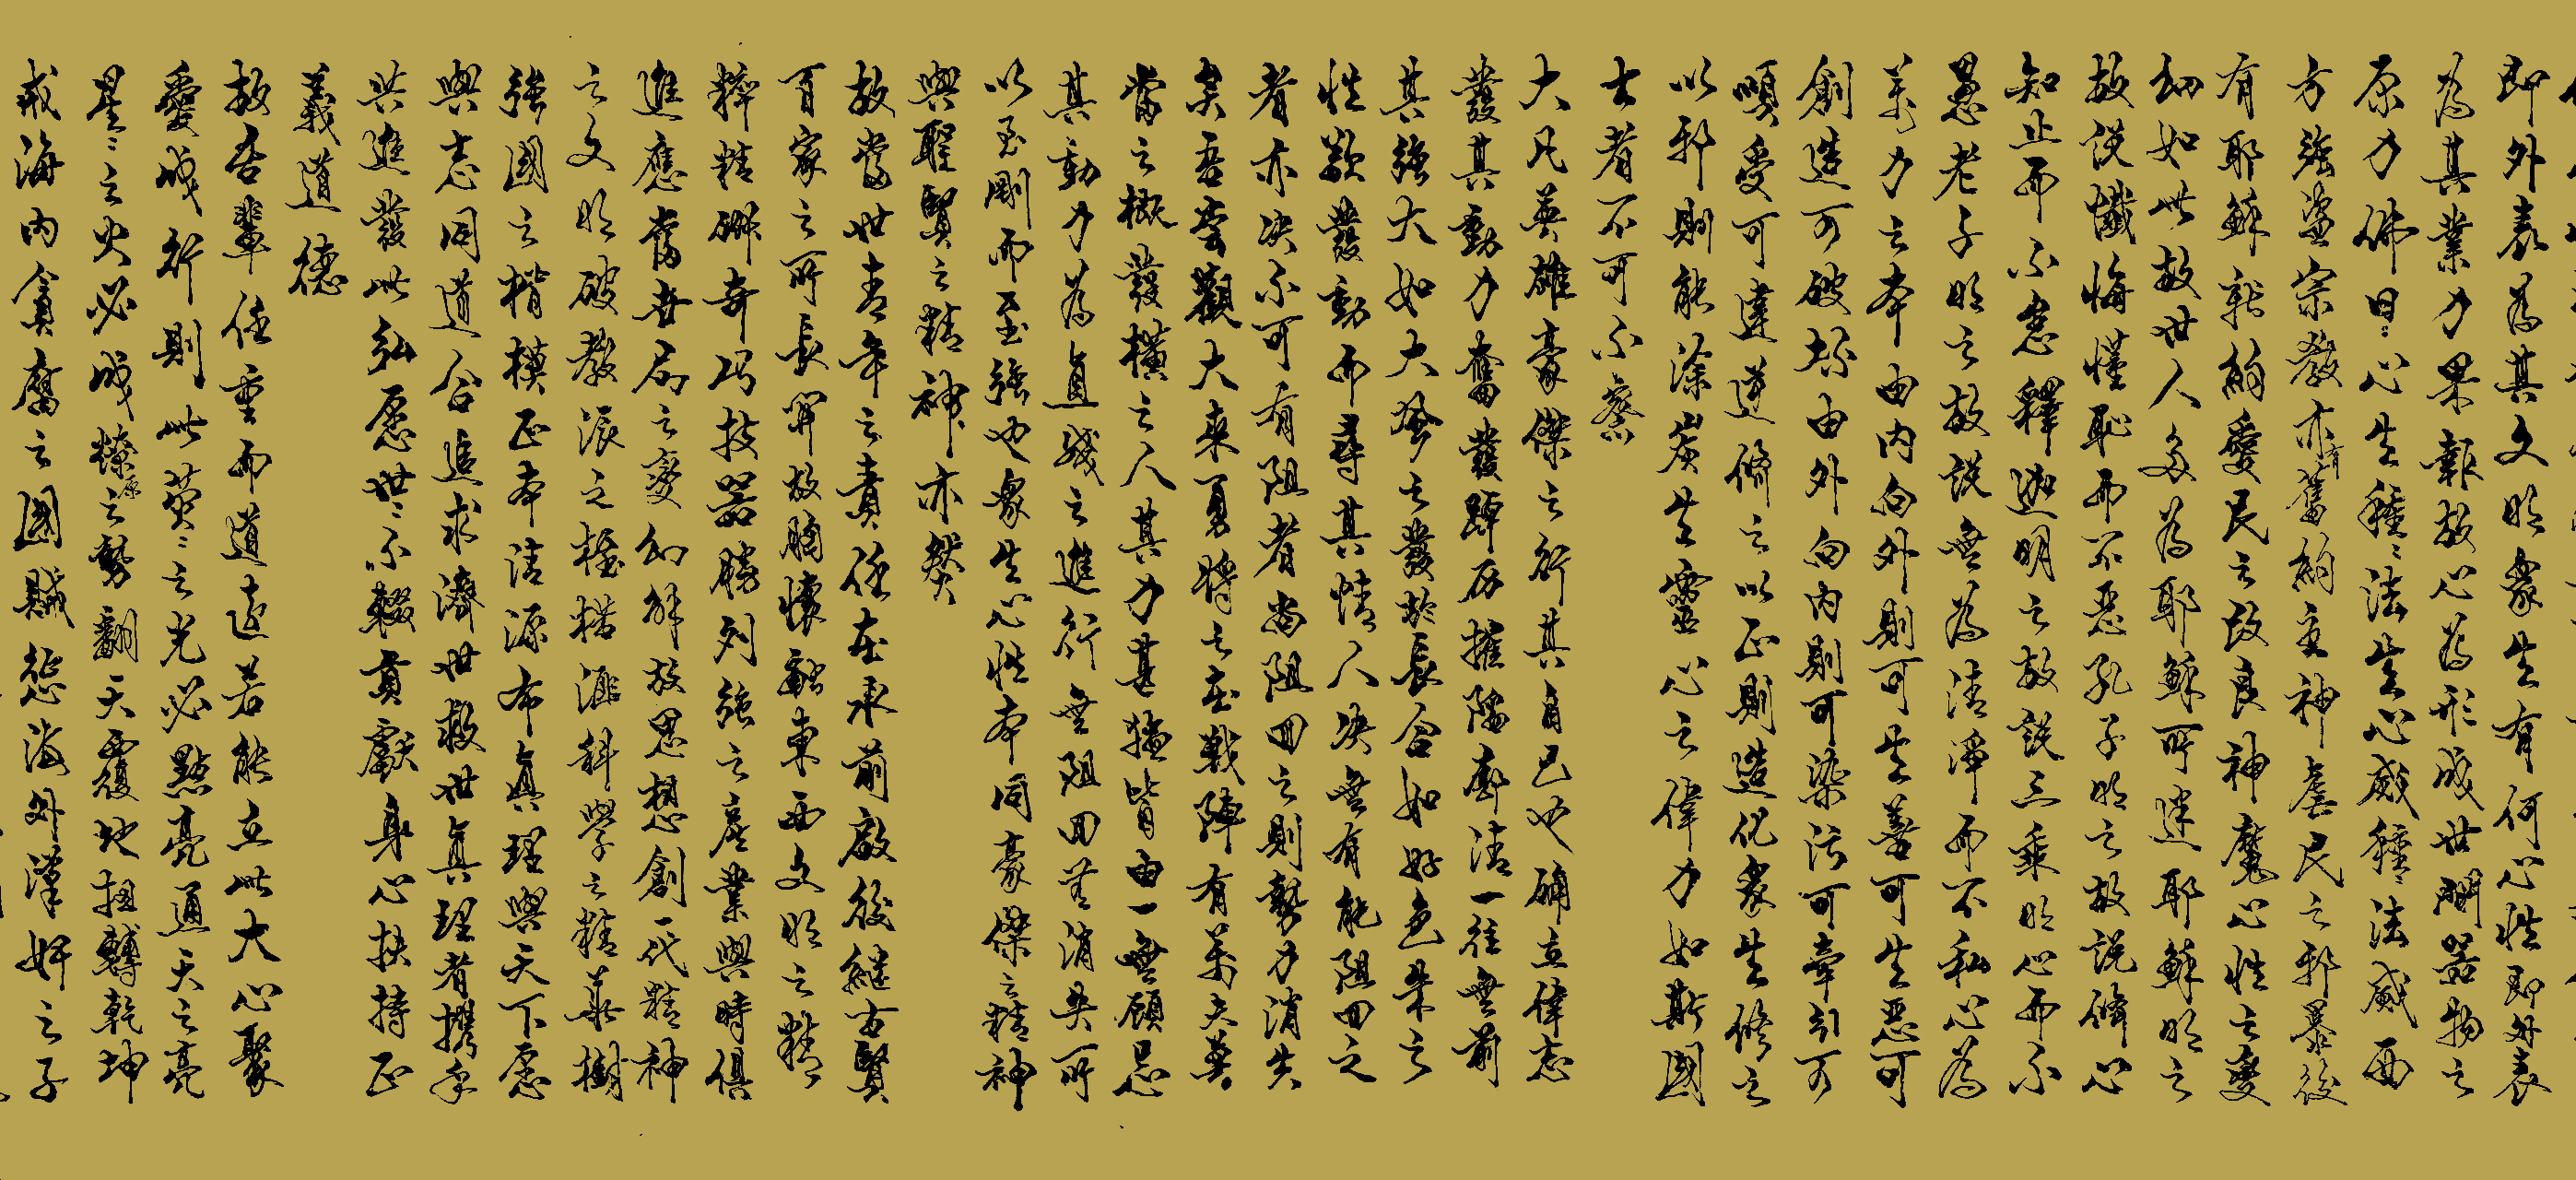 即外表為其文明眾生有何心性即外表
為其業力果報故心為形成世間器物之
原力佛曰心生種種法生心滅種種法滅西
方強盜宗教亦有舊約主神虐民之邪暴後
有耶穌新約愛民之改良神魔心性之變
幻如此故世人多為耶穌所迷耶穌明之
故說懺悔懂恥而不惡孔子明之故說脩心
知止而不怠釋迦明之故說三乘明心而不
愚老子明之故說無為清淨而不私心為
萬力之本由內向外則可生善可生惡可
創造可破壞由外向內則可染污可牽引可
順受可違逆脩之以正則造化眾生修之
以邪則能塗炭生靈心之偉力如斯國
士者不可不察
大凡英雄豪傑之行其自己也確立偉志
發其動力奮發踔厲摧陷廓清一往無前
其強大如大風之發於長谷如好色朱之
性欲發動而尋其情人决無有能阻回之
者亦决不可有阻者尚阻回之則勢力消失
矣吾嘗觀大來勇將之在戰陣有萬夫莫
當之概發橫之人其力甚猛皆由一無顧忌
其動力為直綫之進行無阻回無消失所
以至剛而至強也眾生心性本同豪傑之精神
與聖賢之精神亦然
故當世青年之責任在承前啟後繼古賢
百家之所長開放胸懷融東西文明之精
粹精研奇巧技器勝列強之產業與時俱
進應當世局之變幻解放思想創一代精神
之文明破教派之桎梏滙科學之精華樹
強國之楷模正本清源布真理與天下愿
與志同道合追求濟世救世真理者攜手
共進發此弘愿世世不輟貢獻身心扶持正
義道德
故吾輩任重而道遠若能立此大心聚
愛成行則此熒熒之光必點亮通天之亮
星星之火必成燎原之勢翻天覆地扭轉乾坤
戒海內貪腐之國賊懲海外漢奸之子